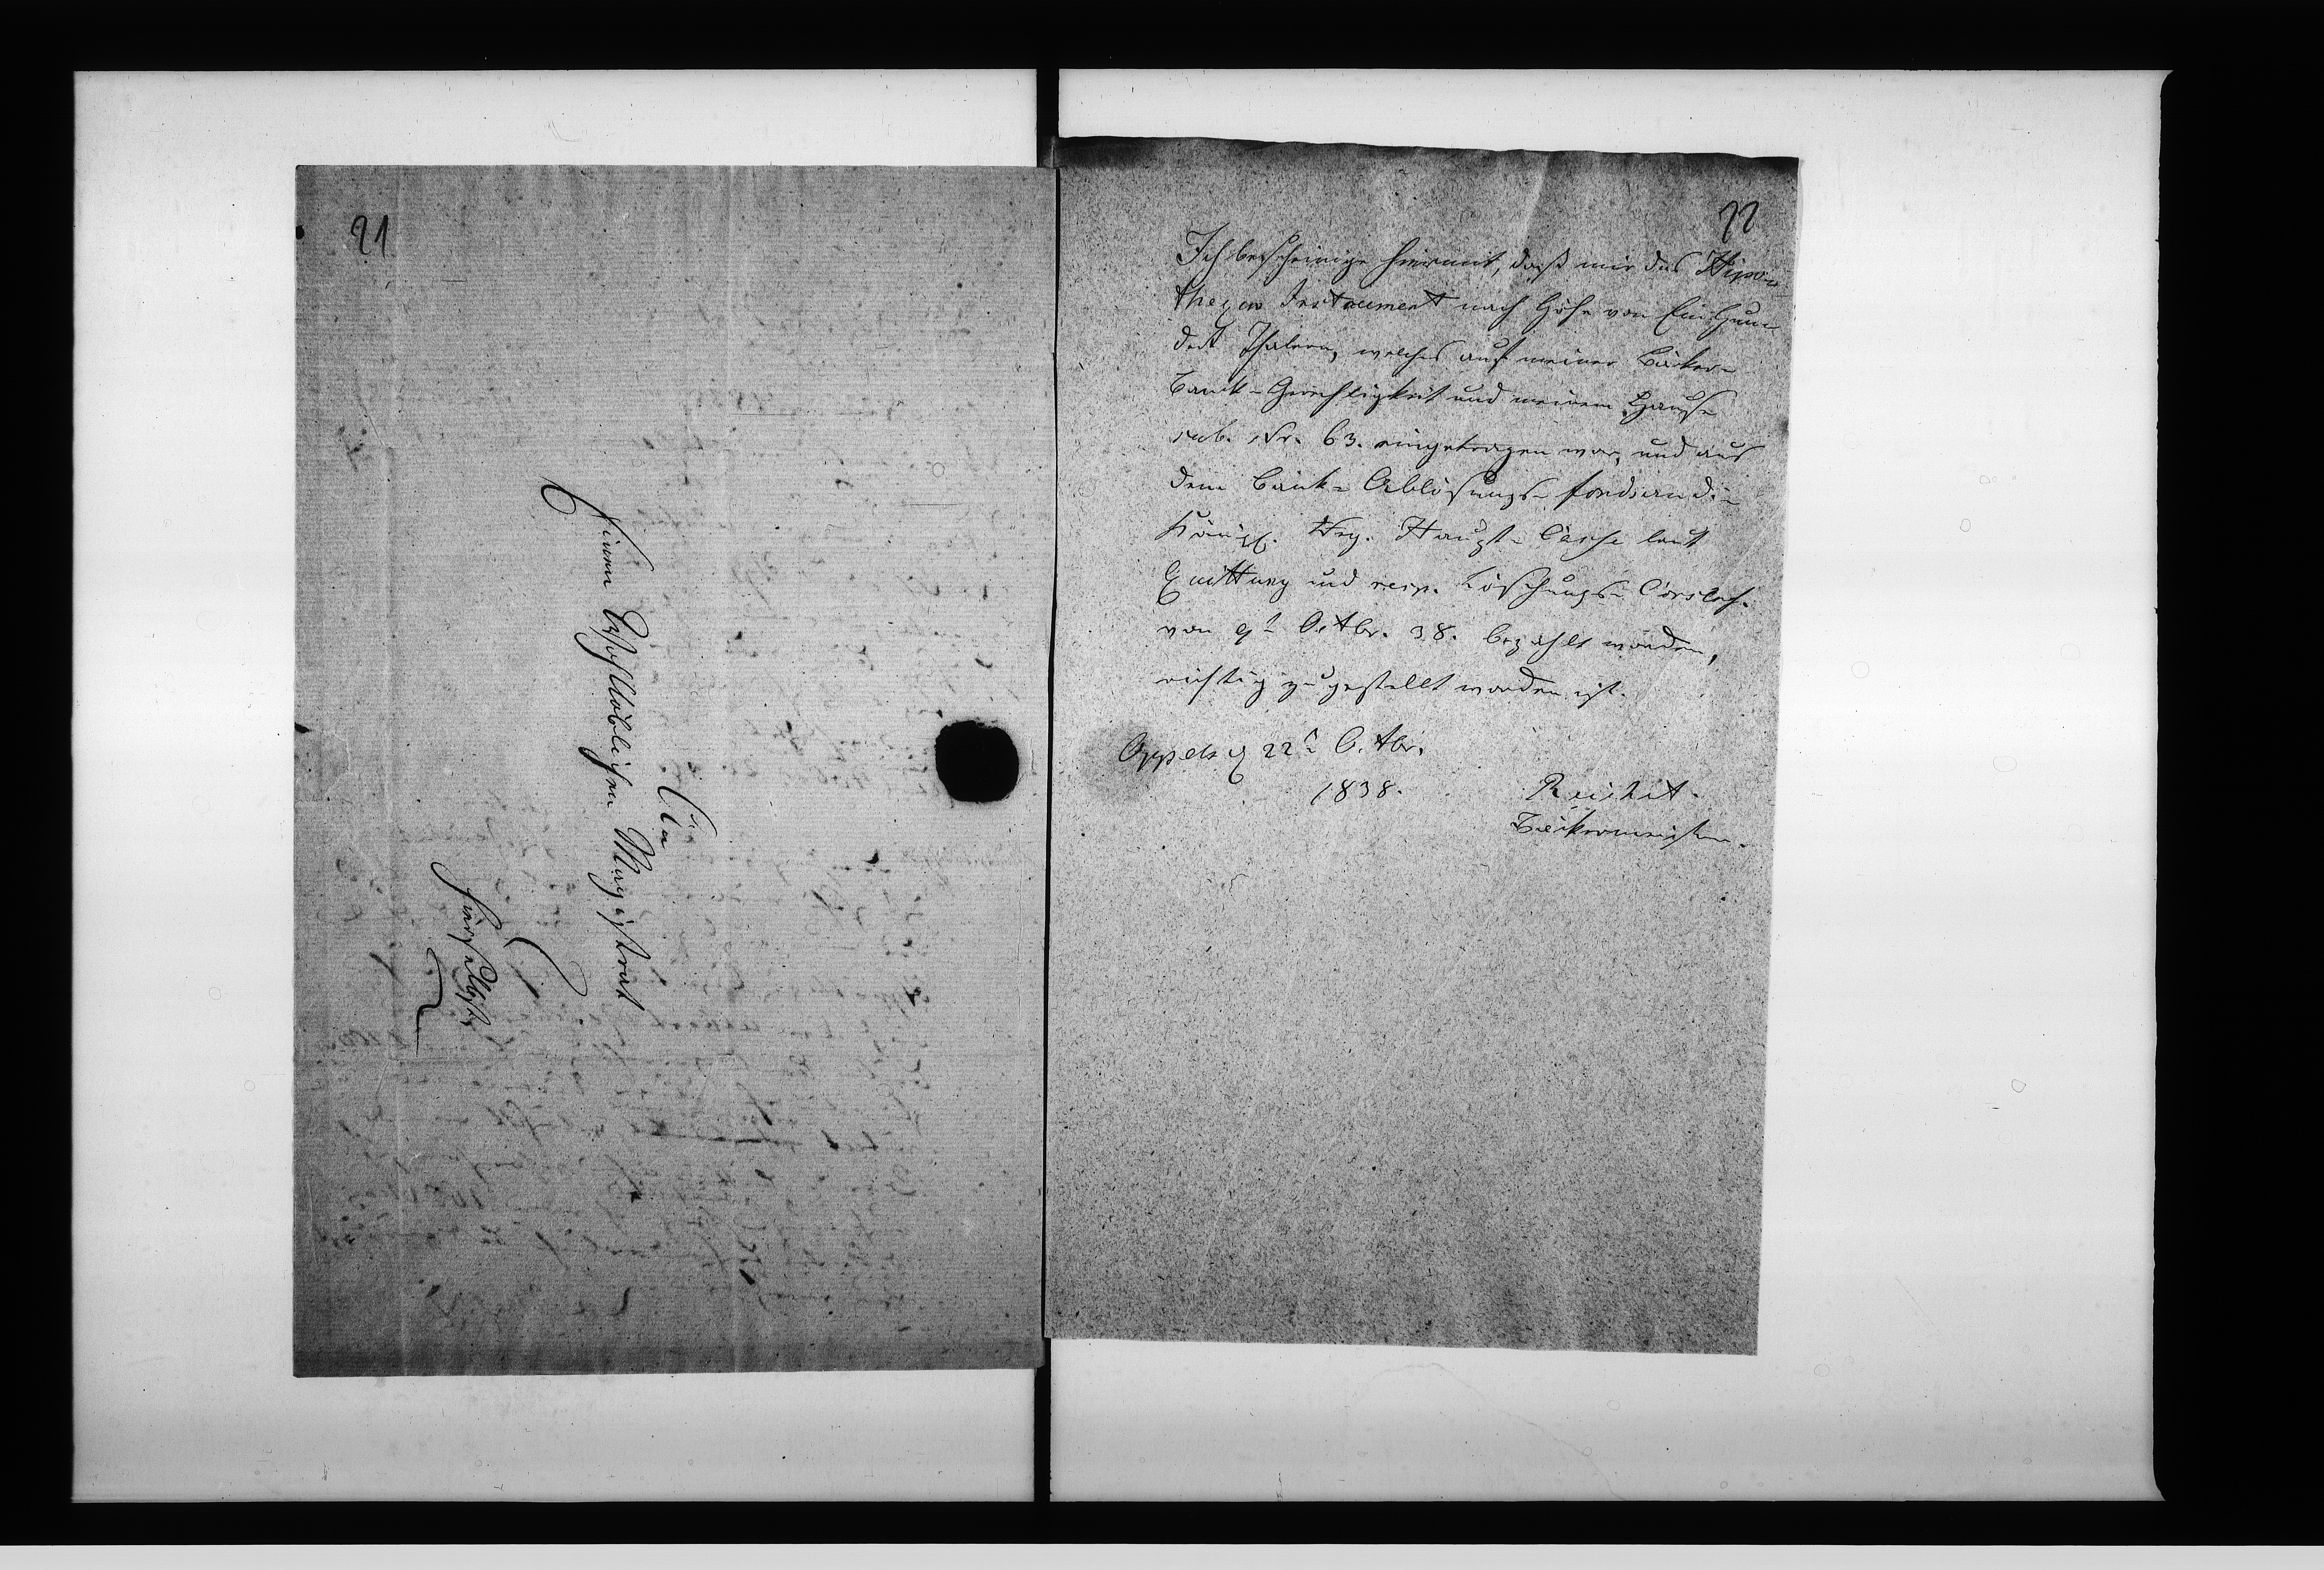 21
An
Einen Wohllöblichen Magistrat
hierselbst
22
Ich bescheinige hiermit, daß mir das Hipo-
theqen Instrument nach Höhe von Ein Hun-
dert Thalern, welches auf meiner Bäker-
bank-Gerechtigkeit und meinem Hause
sub. Nr. 63. eingetragen war, und aus
dem Bank-Ablösungs-fond
Königl. Reg. Haupt-Casse laut
Quittung und resp. Löschungs-
von 9t Octbr. 38. bezahlt worden,
richtig zugestellt worden ist.
Oppeln d 22t Octbr.
1838.
Bäckermeister.